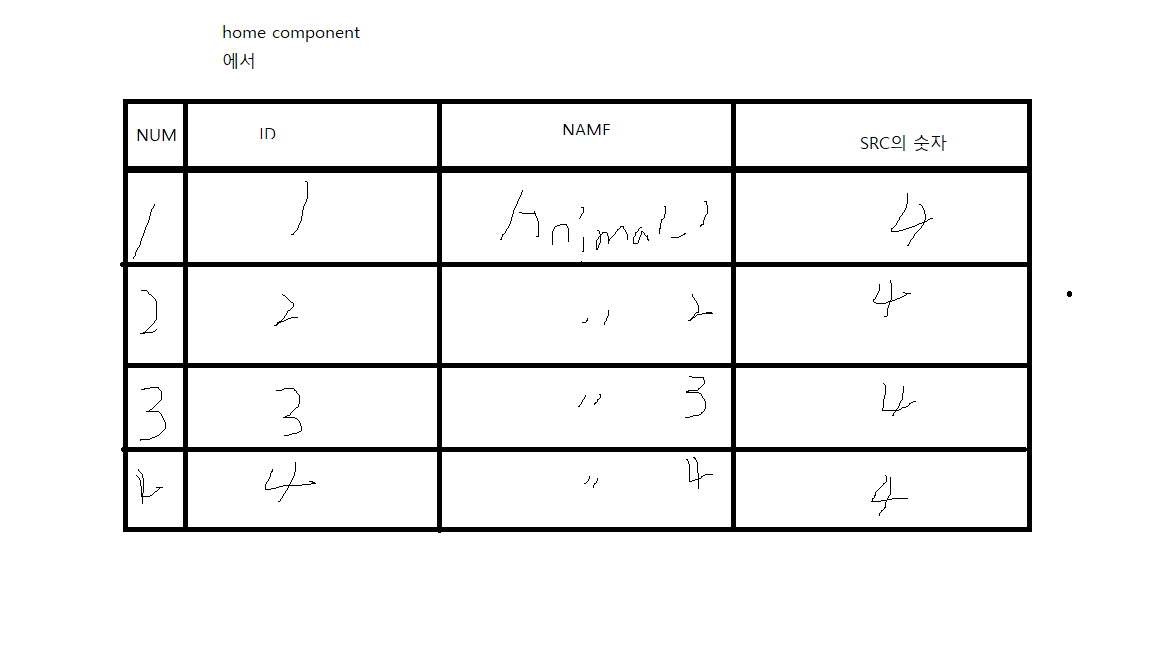 home component
에서
NUM ID NAME SRC의 숫자
1 1 Animal 1 4
2 2 " 2 4
3 3 " 3 4
4 4 " 4 4